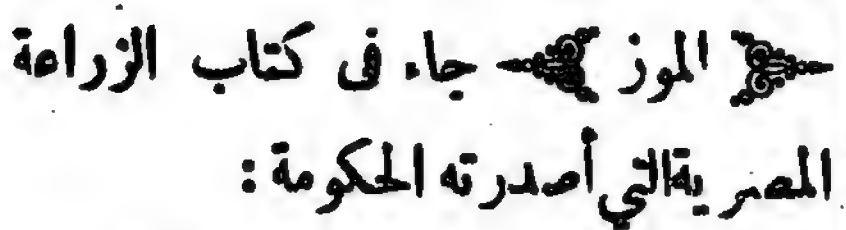 الموز جاء فى كتاب الزراعة
المصرية التي أصدرته الحكومة :